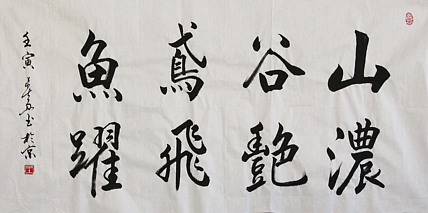 山濃
谷艷
鳶飛
魚躍
壬寅 书於京